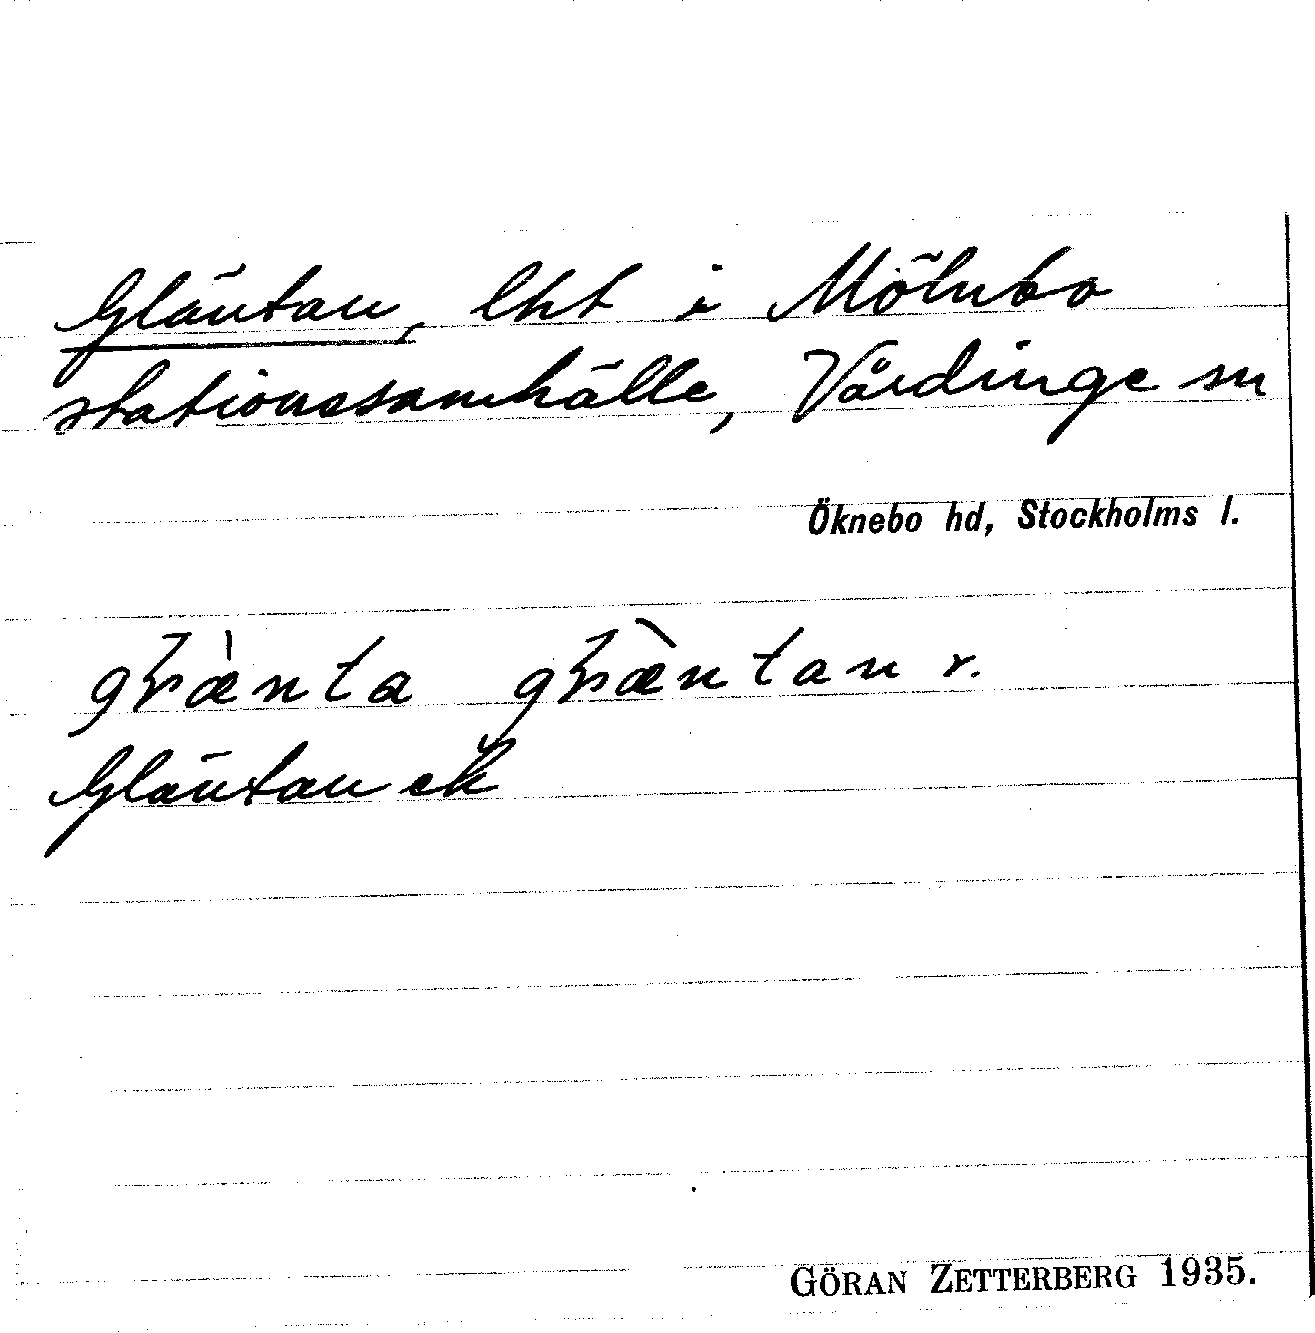 Gläntan, lht i Mölnbo
stationssamhälle, Vårdinge sn
Öknebo hd, Stockholms l.
Gläntan ek
GÖRAN ZETTERBERG 1935.